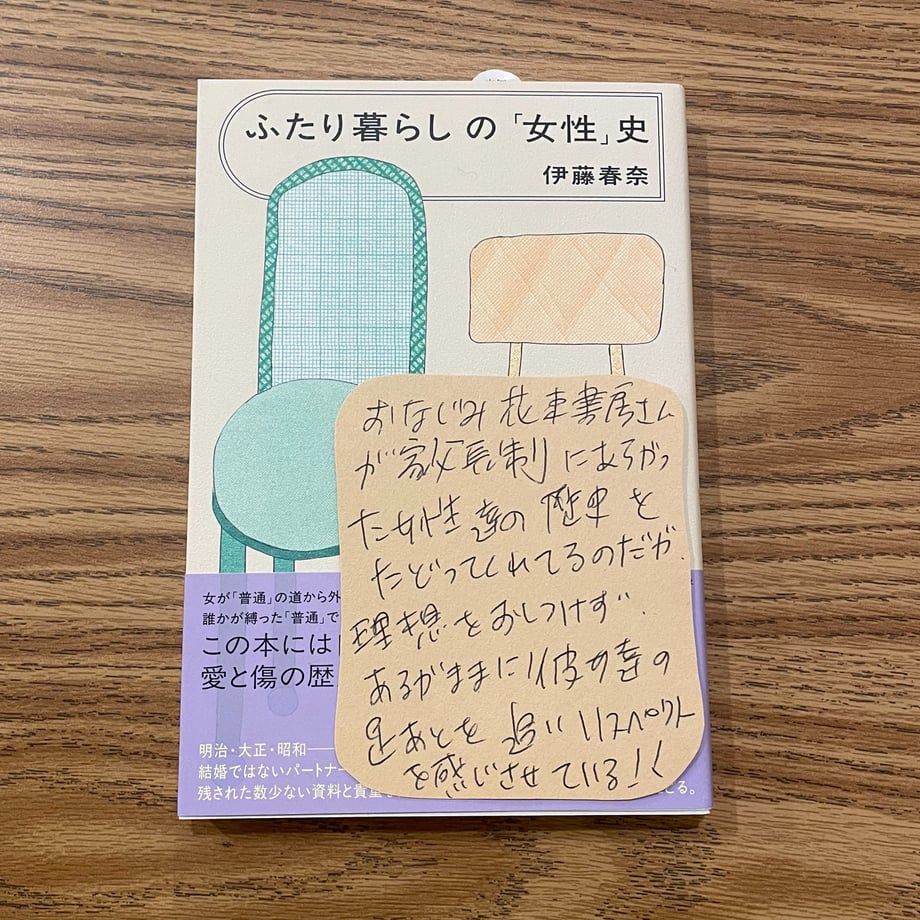 ふたり暮らしの「女性」史
伊藤春奈
おなじみ花束書房さん
が家父長制にあらがっ
た女性達の歴史を
たどってくれてるのだが、
理想をおしつけず、
あるがままに彼女達の
足あとを追いリスペクト
を感じさせている!!
女が「普通」の道から外
誰かが縛った「普通」で
この本には
愛と傷の歴
明治・大正・昭和――
結婚ではないパートナー
残された数少ない資料と貴重